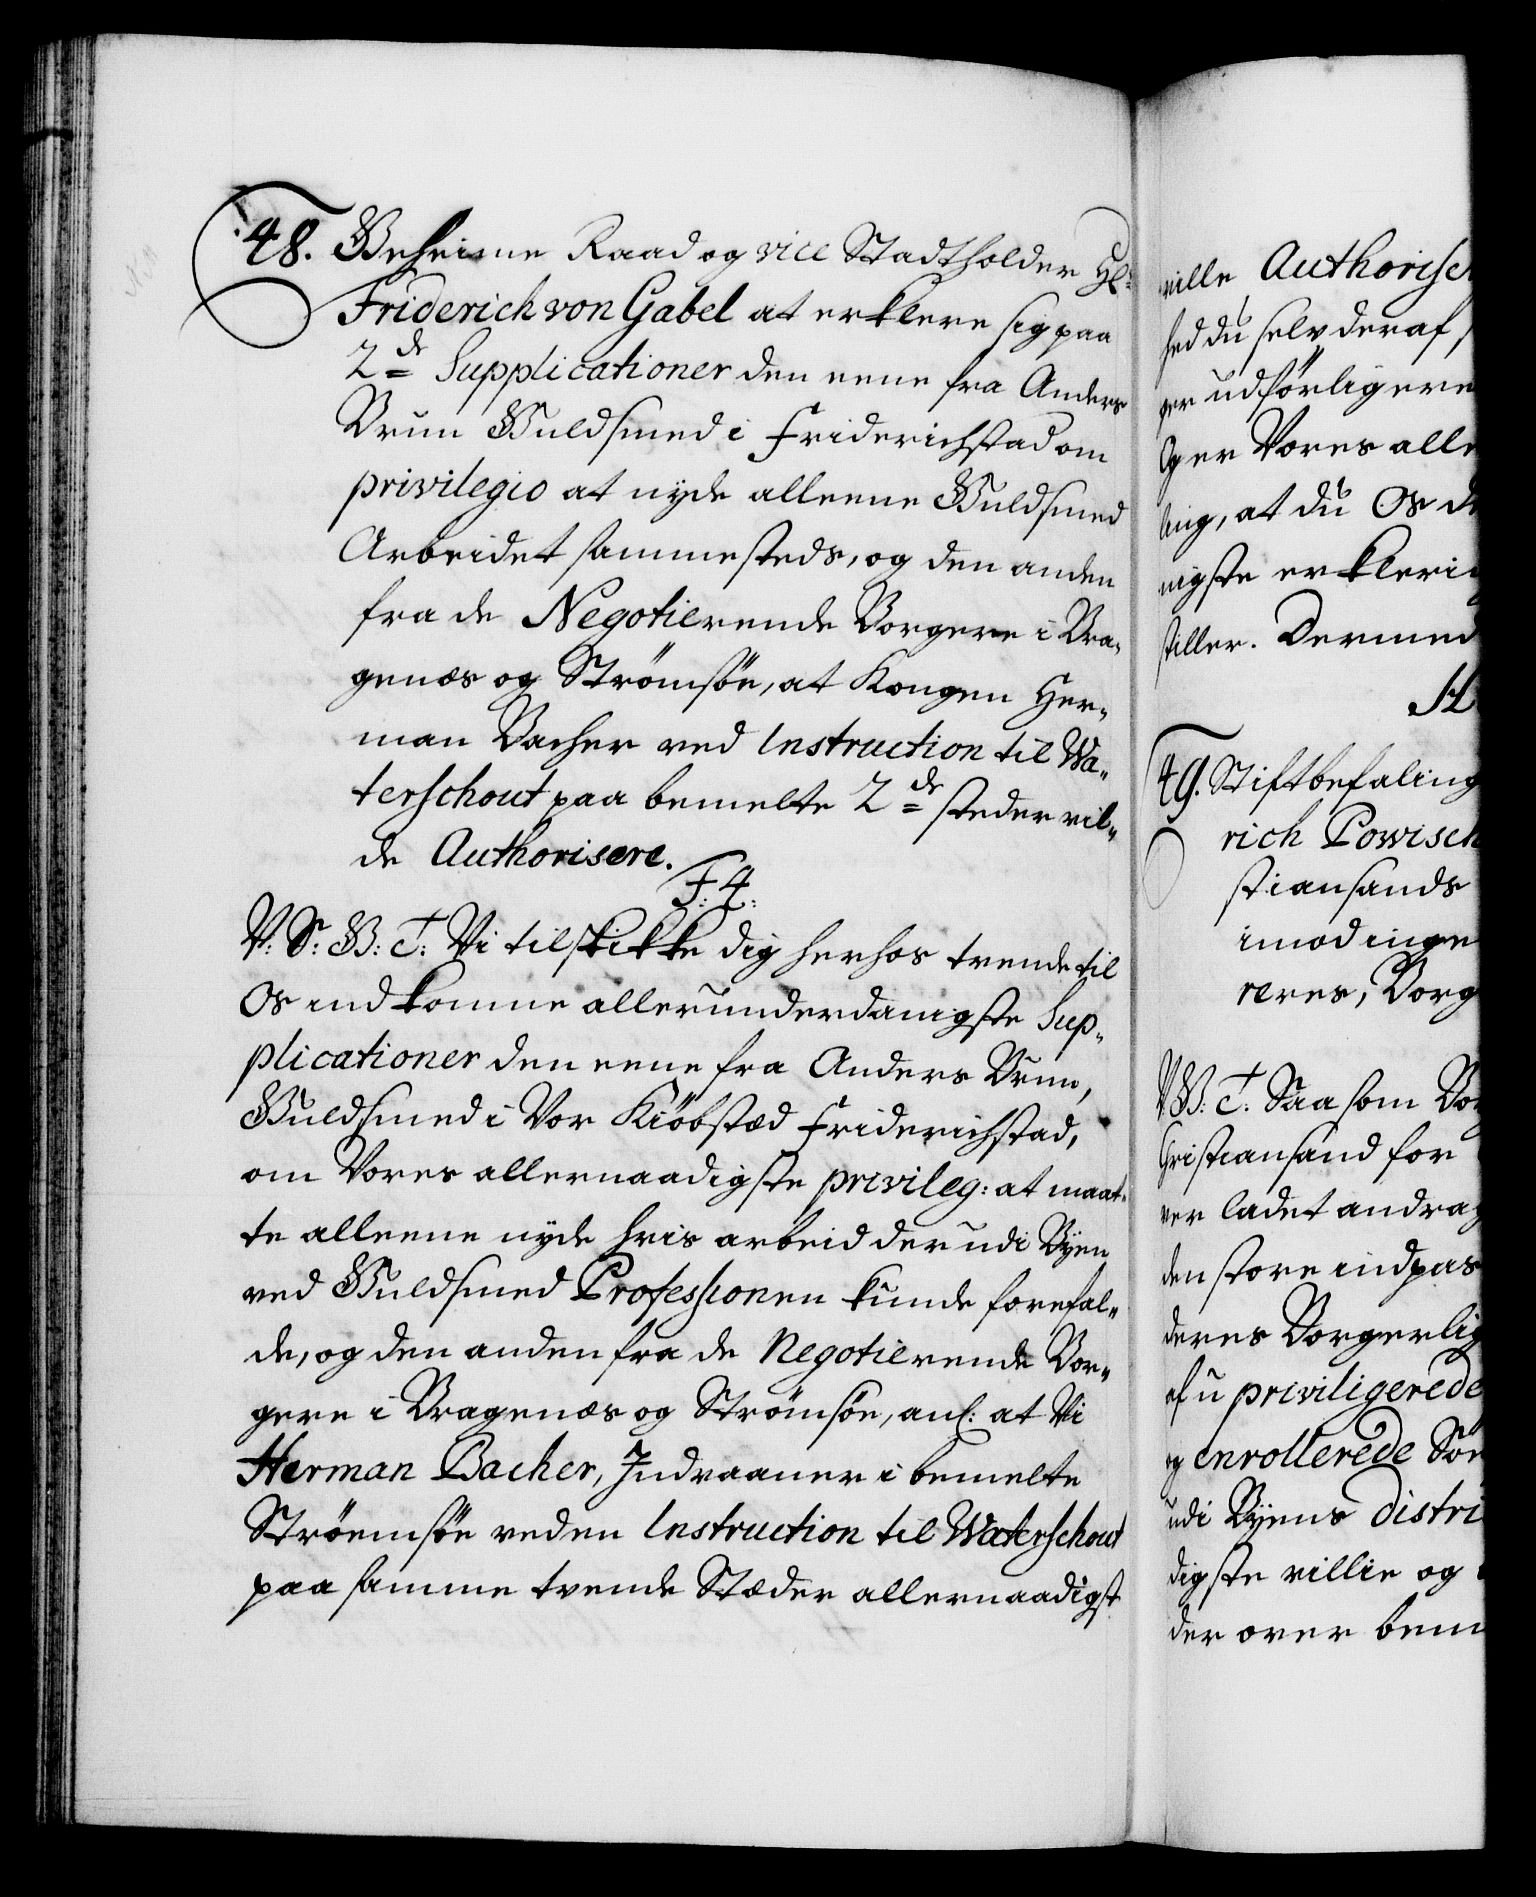 48. Geheime Raad og vice Stadtholder Hr:
Friderich von Gabel at erklere sig paa
2de Supplicationer den eene fra Anders
Brun Guldsmed i Friderichstad om
privilegio at nyde alleene Guldsmed
Arbeidet sammesteds, og den anden
fra de Negotierende Borgere i Bra-
genæs og Strømsøe, at Kongen Her-
man Bacher ved Instruction til Wa-
terschout paa bemelte 2de steder vil-
de Authorisere.
F: 4:
V: S: G: T: Vi tilskikke dig herhos trende til
Os indkomne allerunderdanigste Sup-
plicationer den eene fra Anders Brun,
Guldsmed i Vor Kiøbstæd Friderichstad,
om Vores allernaadigste privileg: at maat-
te alleene nyde hvis arbeid der udi Byen
ved Guldsmed Professionen kunde forefal-
de, og den anden fra de Negotierende Bor-
gere i Bragenæs og Strømsøe, anl: at Vi
Herman Bacher, Indvaaner i bemelte
Strøemsøe ved en Instruction til Waterschout
paa samme tvende Stæder allernaadigst
ville Authoriser
hed du selv deraf
ger udførligere
Og er Vores alle
ling, at du Os
nigste erkleri
stiller. Dermed
H
49. Stiftbefaling
rich Powisch
stiansands
imod inge
reres, Borg
V G: T: Saasom Bor
Christiansand for
ver ladet andrag
den store indpas
deres Borgerlig
af u priviligerede
og enrollerede Søe
udi Byens distri
digste villie og
der over bem